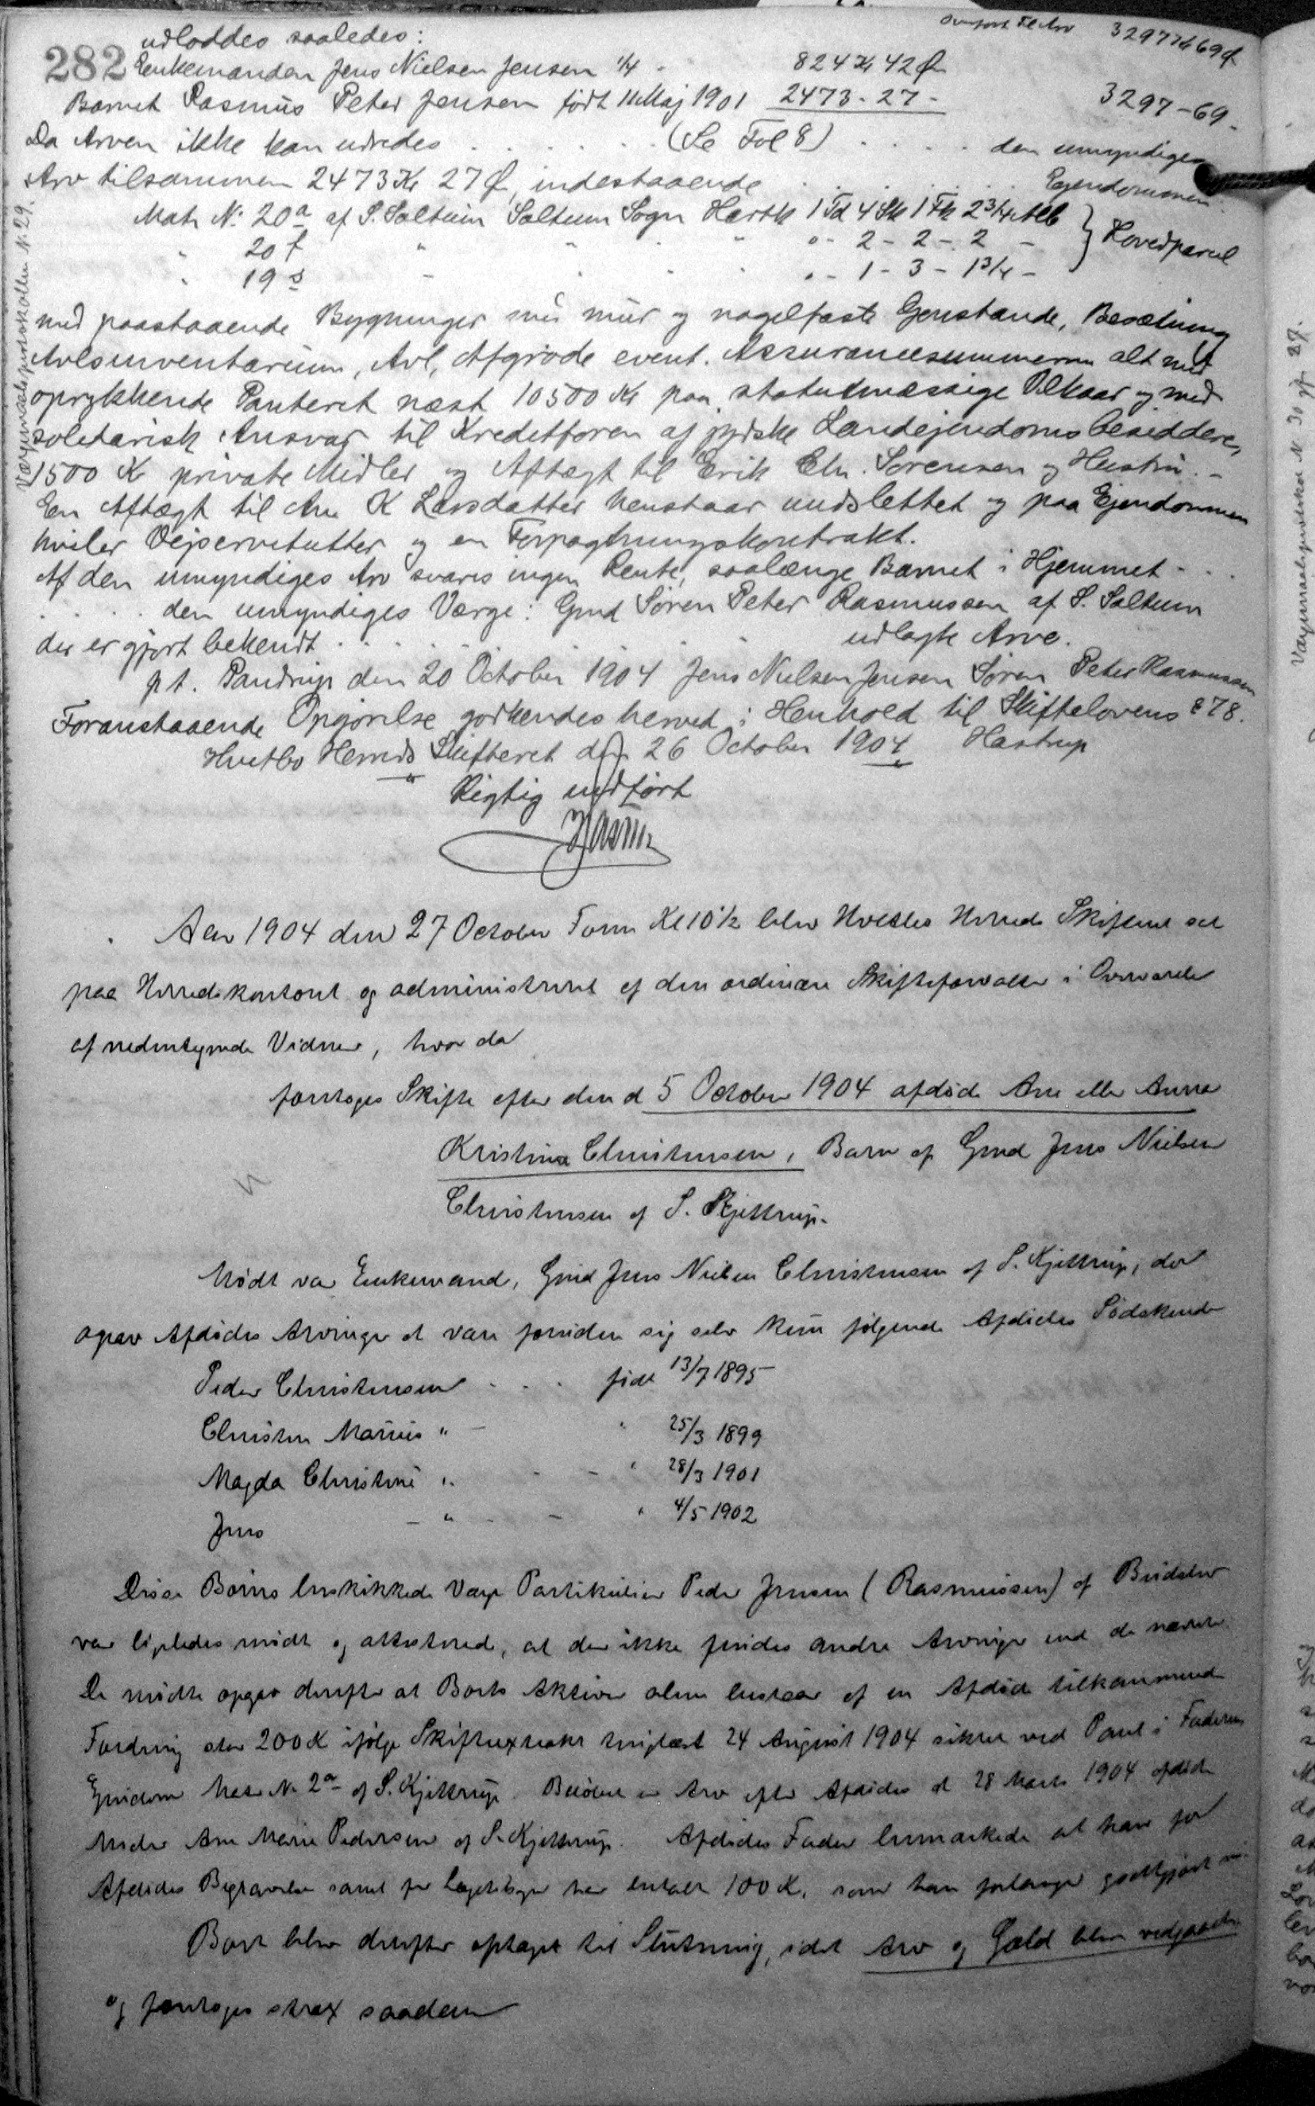 overført til Arv 3297 Kr 69 Ø
282 udloddes saaledes:
Enkemanden Jens Nielsen Jensen 1/4 - 824 Kr 42 Ø
Barnet Rasmus Peter Jensen født 11 Maj 1901 2473 - 27 - 3297 - 69 -
Da Arven ikke kan udredes . . . . . . (Se Fol 8) . . . . den umyndiges
Arv tilsammen 2473 Kr 27 Ø, indestaaende . . . . . . Ejendommen
Matr. No: 20a af S. Saltum Saltum Sogn Hartk 1 Td 4 Skr 1 Fk 2 3/4 Alb } Hovedparcel
" 20f " " " " o - 2 - 2 - 2 -
" 19s - " " " o - 1 - 3 - 1 3/4 -
med paastaaende Bygninger mur og nagelfaste Genstande, Besætning
Avlsinventarium, Avl, Afgrøde event. Assurancesummerne alt med
oprykkende Panteret næst 10500 Kr paa statutmæssige Vilkaar og med
solidarisk Ansvar til Kreditforen af jydske Landejendomsbesiddere,
1500 Kr private Midler og Aftægt til Erik Chr. Sørensen og Hustru. -
En Aftægt til Ane K Larsdatter henstaar uudslettet og paa Ejendommen
hviler Vejservitutter og en Forpagtningskontrakt.
Af den umyndiges Arv svares ingen Rente, saalænge Barnet i Hjemmet - . .
. . . . den umyndiges Værge: Gmd Søren Peter Rasmussen af S. Saltum
der er gjort bekendt . . . . . . udlagte Arve.
p t. Pandrup den 20 October 1904 Jens Nielsen Jensen Søren Peter Rasmussen
Foranstaaende Opgørelse godkendes herved i Henhold til Skiftelovens § 78.
Hvetbo Herreds Skifteret den 26 October 1904 Hastrup
Rigtig udført
Værgemaalsprotokollen N. 29.
Aar 1904 den 27 October Form Kl 10 1/2 blev Hvetbo Herreds Skifteret sat
paa Herredskontoret og administreret af den ordinære Skifteforvalter i Overværelse
af nedentegnede Vidner, hvor da
foretoges Skifte efter den d 5 October 1904 afdøde Ane eller Anna
Kristina Christensen, Barn af Gmd Jens Nielsen
Christensen af S. Kjettrup.
Mødt var Enkemand, Gmd Jens Nielsen Christensen af S. Kjettrup, der
opgav Afdødes Arvinger at være foruden sig selv kun følgende Afdødes Sødskende
Peder Christensen - . . . født 13/7 1895
Christen Marius " - " 25/3 1899
Magda Christine " - - " 28/3 1901
Jens - " - - " 4/5 1902
Disse Børns beskikkede Værge Partikulier Peder Jensen (Rasmussen) af
var ligeledes mødt og attesterede, at der ikke findes andre Arvinger end de nævnte.
De mødte opgav derefter at Boets Aktiver alene bestaar af en Afdøde tilkommende
Fordring stor 200 K ifølge Skifteextrakt tinglæst 24 August 1904 sikret ved Pant i Faderens
Ejendom Matr No 2a af S. Kjettrup. Beløbet er Arv efter Afdødes d 28 Marts 1904 afdøde
Moder Ane Marie Pedersen af S. Kjettrup. Afdødes Fader bemærkede at have for
Afdødes Begravelse samt for Lægetilsyn her betalt 100 K, som han forlanger godtgjort
Boet blev derefter optaget til Slutning, idet Arv og Gæld blev vedgaaet
og foretoges strax saadan
Værgemaalsprotokol N 30 p 29.